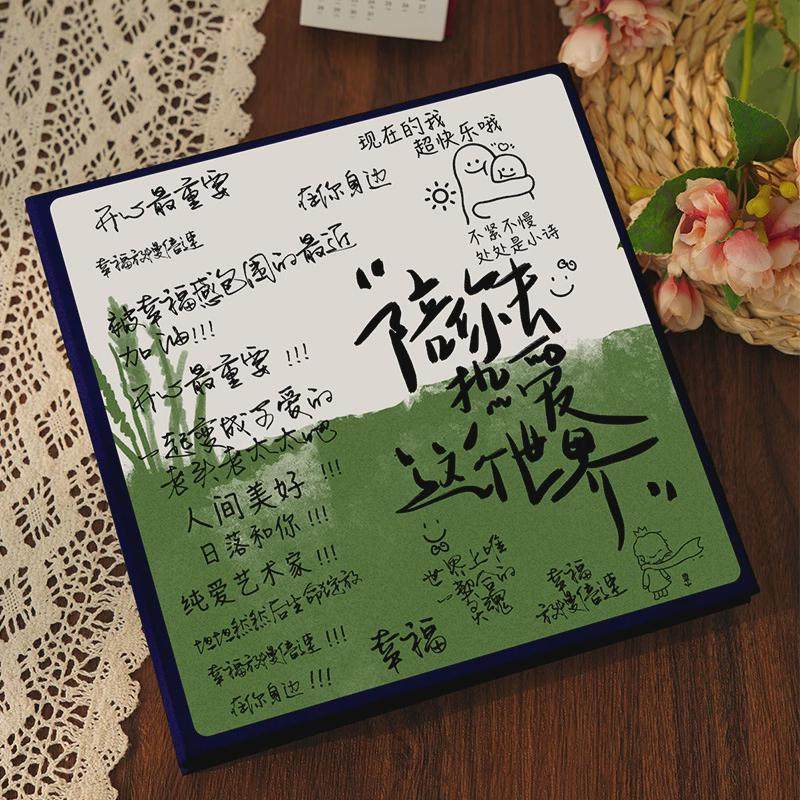 现在的我
超快乐哦
开心最重要
在你身边
幸福放慢倍速
不紧不慢
处处是小诗
被幸福感包围的最近
加油!!!
开心最重要 !!!
一起变成可爱的
老头老太太吧 !!!
人间美好
日落和你 !!!
纯爱艺术家 !!!
幸福放慢倍速 !!!
在你身边 !!!
“陪你去
热爱
这个世界”
世界上唯
一契合的
灵魂
幸福
放慢倍速
幸福